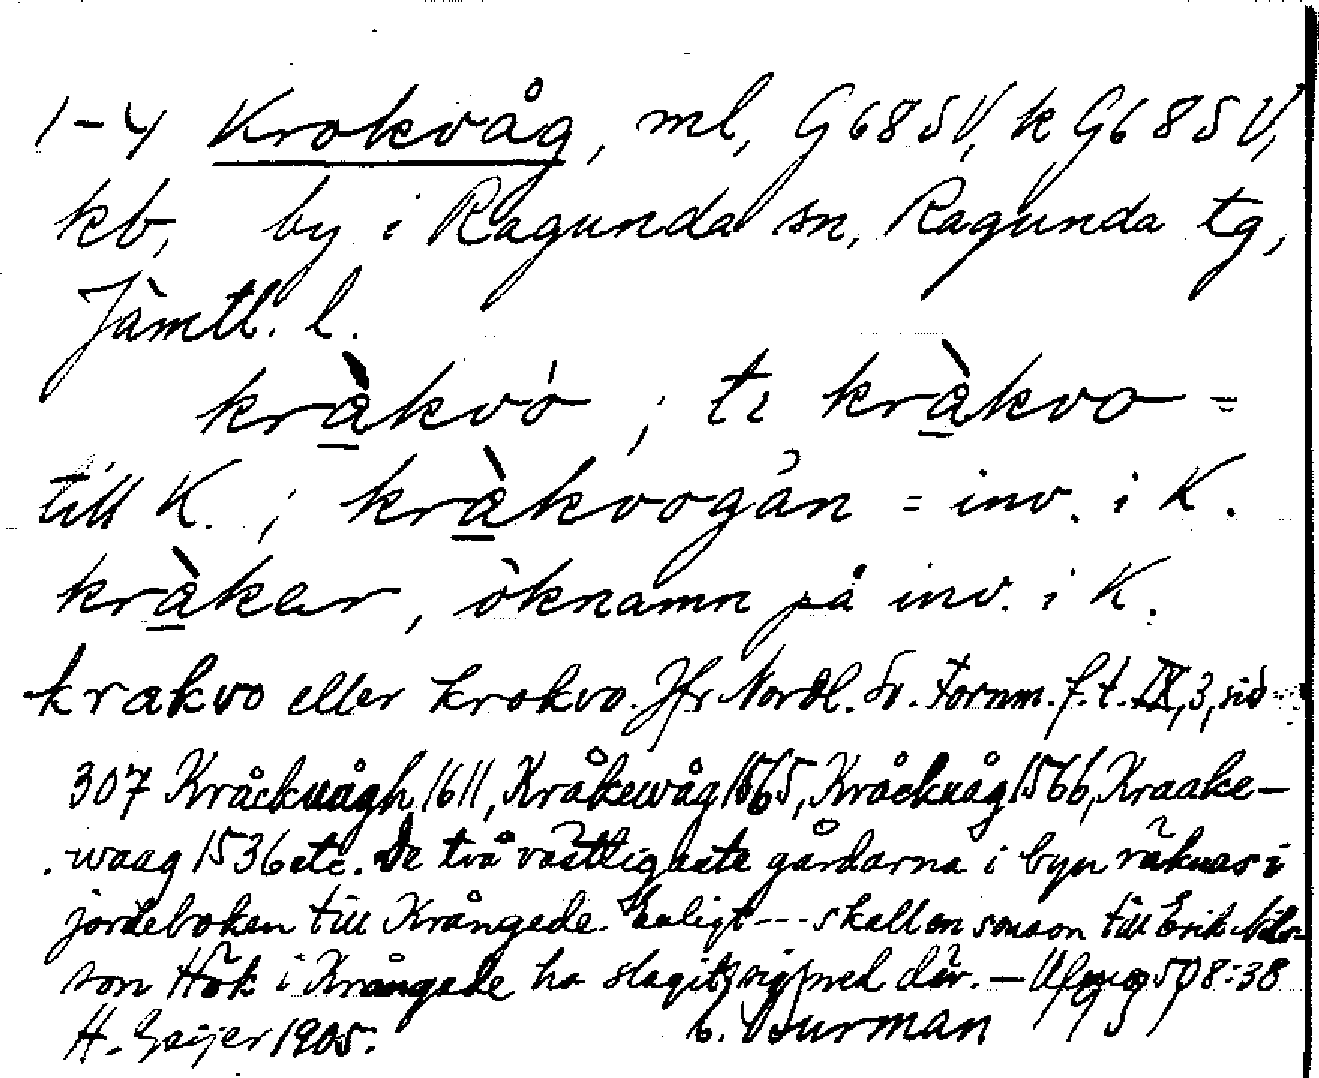 1-4 Krokvåg, ml, G68SV, k G68SV,
kb, by i Ragunda sn, Ragunda tg,
Jämtl. l.
kràkvó ; te kràkvo =
till K. ; kràkvogån = inv. i K.
kràker, öknamn på inv. i K.
krakvo eller krokvo. Jfr Nordl. Sv. Fornm. f. t. IX,3, sid
307 Kråckuågh 1611, Kråkewåg 1565, Kråckuåg 1566, Kraake-
waag 1536 etc. De två västligaste gårdarna i byn räknas i
jordeboken till Krångede. Enligt --- skall en sonson till Erik Nils-
son Hök i Krångede ha slagit sig ned där. — 508:38
H. Geijer 1905. C. Burman 1939